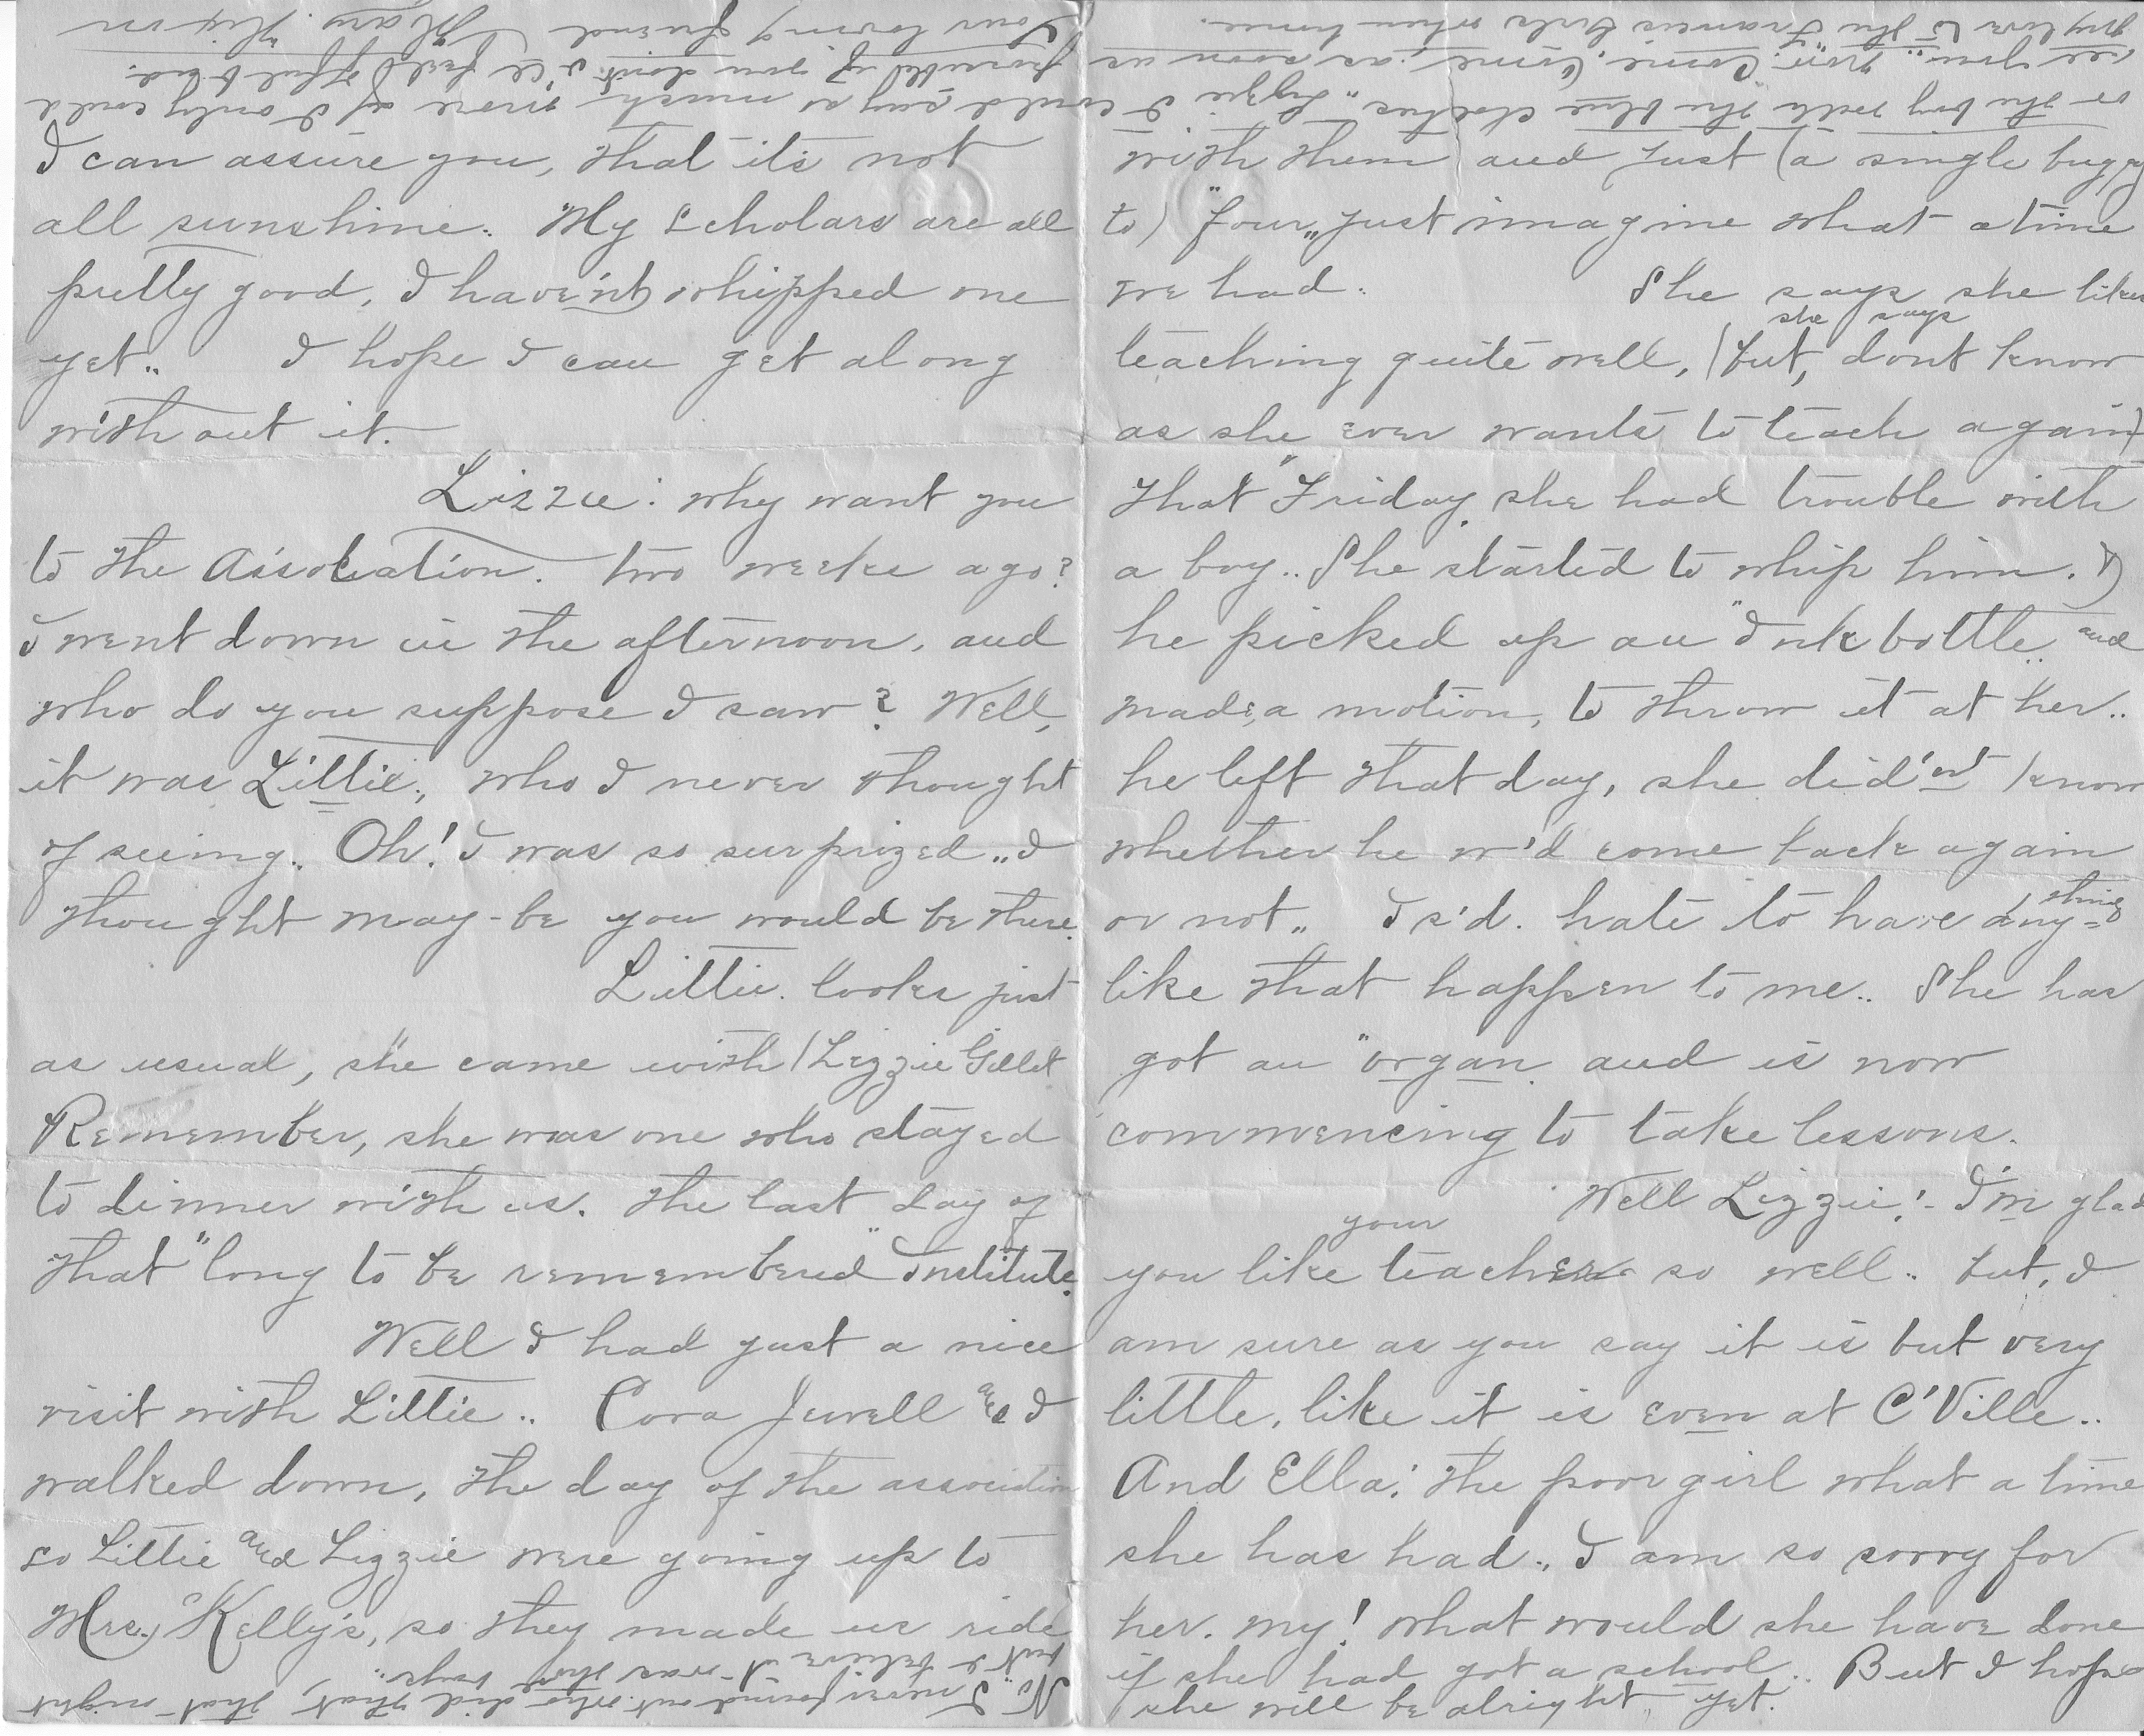 I can assure you, that it's not
all sunshine. My Scholars are all
pretty good, I have'nt whipped one
yet.. I hope I can get along
without it.
Lizzie: why want you
to the Association. two weeks ago?
I went down in the afternoon, and
who do you suppose I saw? Well,
it was Littie, who I never thought
of seeing. Oh! I was so surprized.. I
thought may-be you would be there.
Littie. looks just
as usual, she came with (Lizzie Gillet
Remember, she was one who stayed
to dinner with us. the last day of
that "long to be remembered" Institute.
Well I had just a nice
visit with Littie.. Cora Jewell and I
walked down, the day of the association
so Littie and Lizzie were going up to
Mrs. Kelly's, so they made us ride
with them and just (a single buggy
to) "four" just imagine what a time
we had. She says she likes
teaching quite well, (but, she says dont know
as she ever wants to teach again)
That "Friday she had trouble with
a boy.. She started to whip him. &
he picked up an "Ink bottle" and
made, a motion, to throw it at her..
he left that day, she did'nt know
whether he w'd come back again
or not.. I s'd. hate to have anything
like that happen to me.. She has
got an "organ and is now
commencing to take lessons.
Well Lizzie! - I'm glad
you like your teacher so well.. but, I
am sure as you say it is but very
little, like it is even at C'Ville..
And Ella: the poor girl what a time
she has had.. I am so sorry for
her. My! what would she have done
if she had got a school.. But I hope
she will be alright, yet.
"No" I never found out who did that, that night
but I believe it was the boys..
or the boy with the blue clothes" Lizzie: I could say so much more if I only could
see you.. now "Come. Come, as soon as
possible if you don't I'll feel offul bad.
My love to the Francis Girls when home.
Your loving friend Mary Hixon